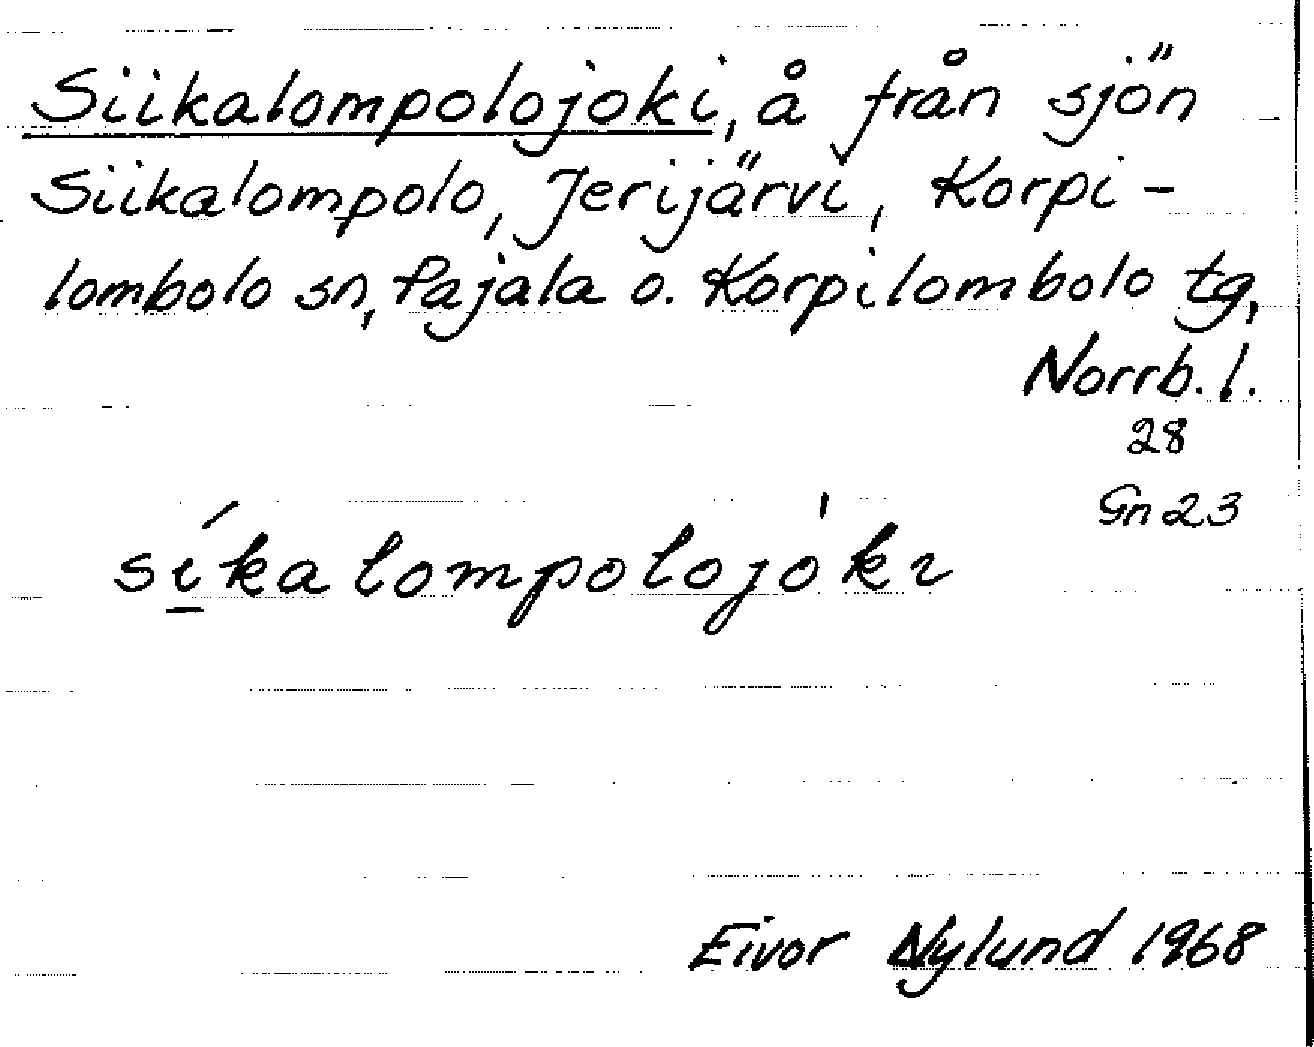 Siikalompolojoki, å från sjön
Siikalompolo, Jerijärvi, Korpi-
lombolo sn, Pajala o. Korpilombolo tg,
Norrb. l.
28
Gn 23
sí̱kalompolojo̍kɩ
Eivor Nylund 1968